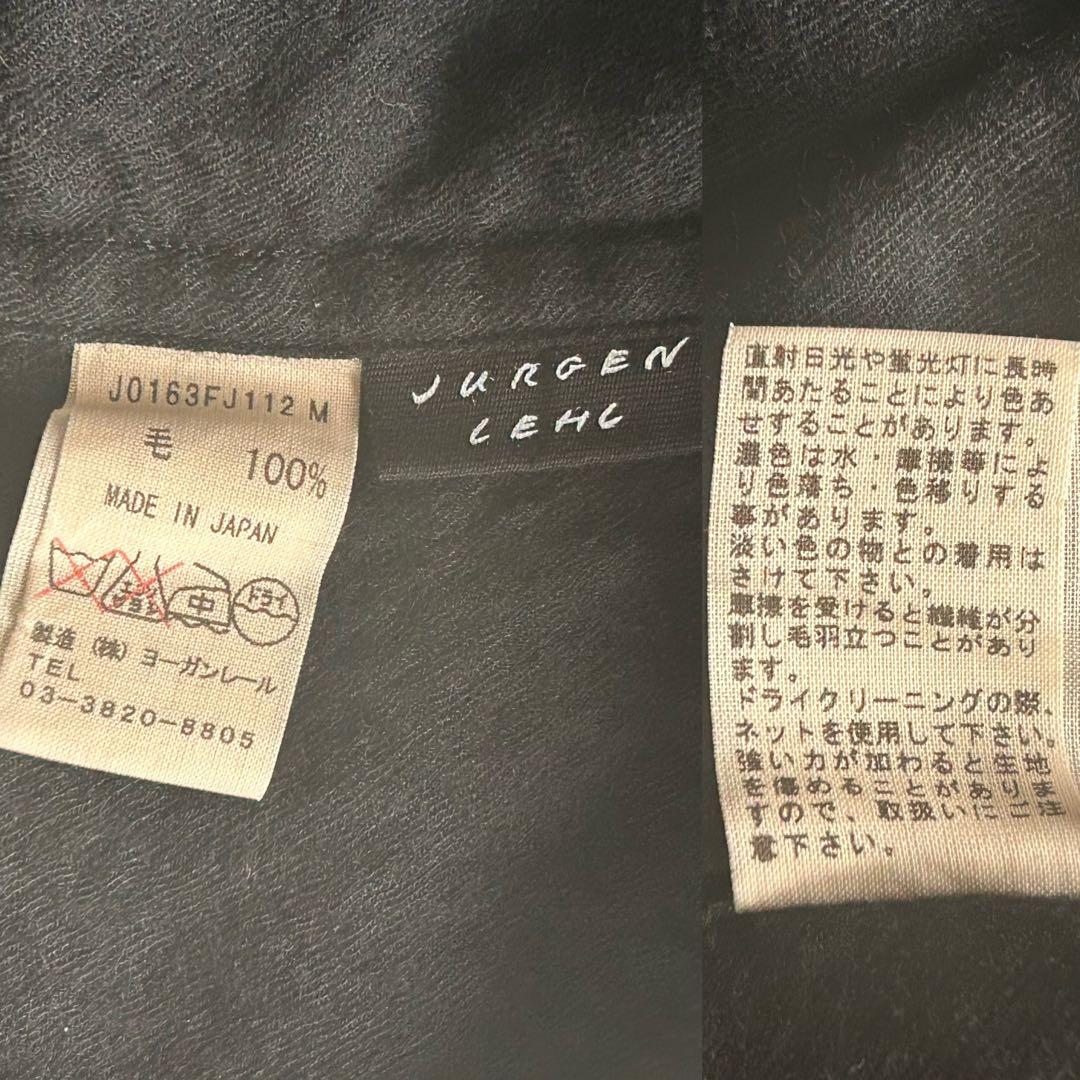 J0163FJ112 M
毛 100%
MADE IN JAPAN
中
ドライ
製造 (株) ヨーガンレール
TEL
03-3820-8805
JURGEN
LEHL
直射日光や蛍光灯に長時
間あたることにより色あ
せすることがあります。
濃色は水・摩擦等によ
り色落ち・色移りする
事があります。
淡い色の物との着用は
さけて下さい。
摩擦を受けると繊維が分
割し毛羽立つことがあり
ます。
ドライクリーニングの際、
ネットを使用して下さい。
強い力が加わると生地
を傷めることがありま
すので、取扱いにご注
意下さい。